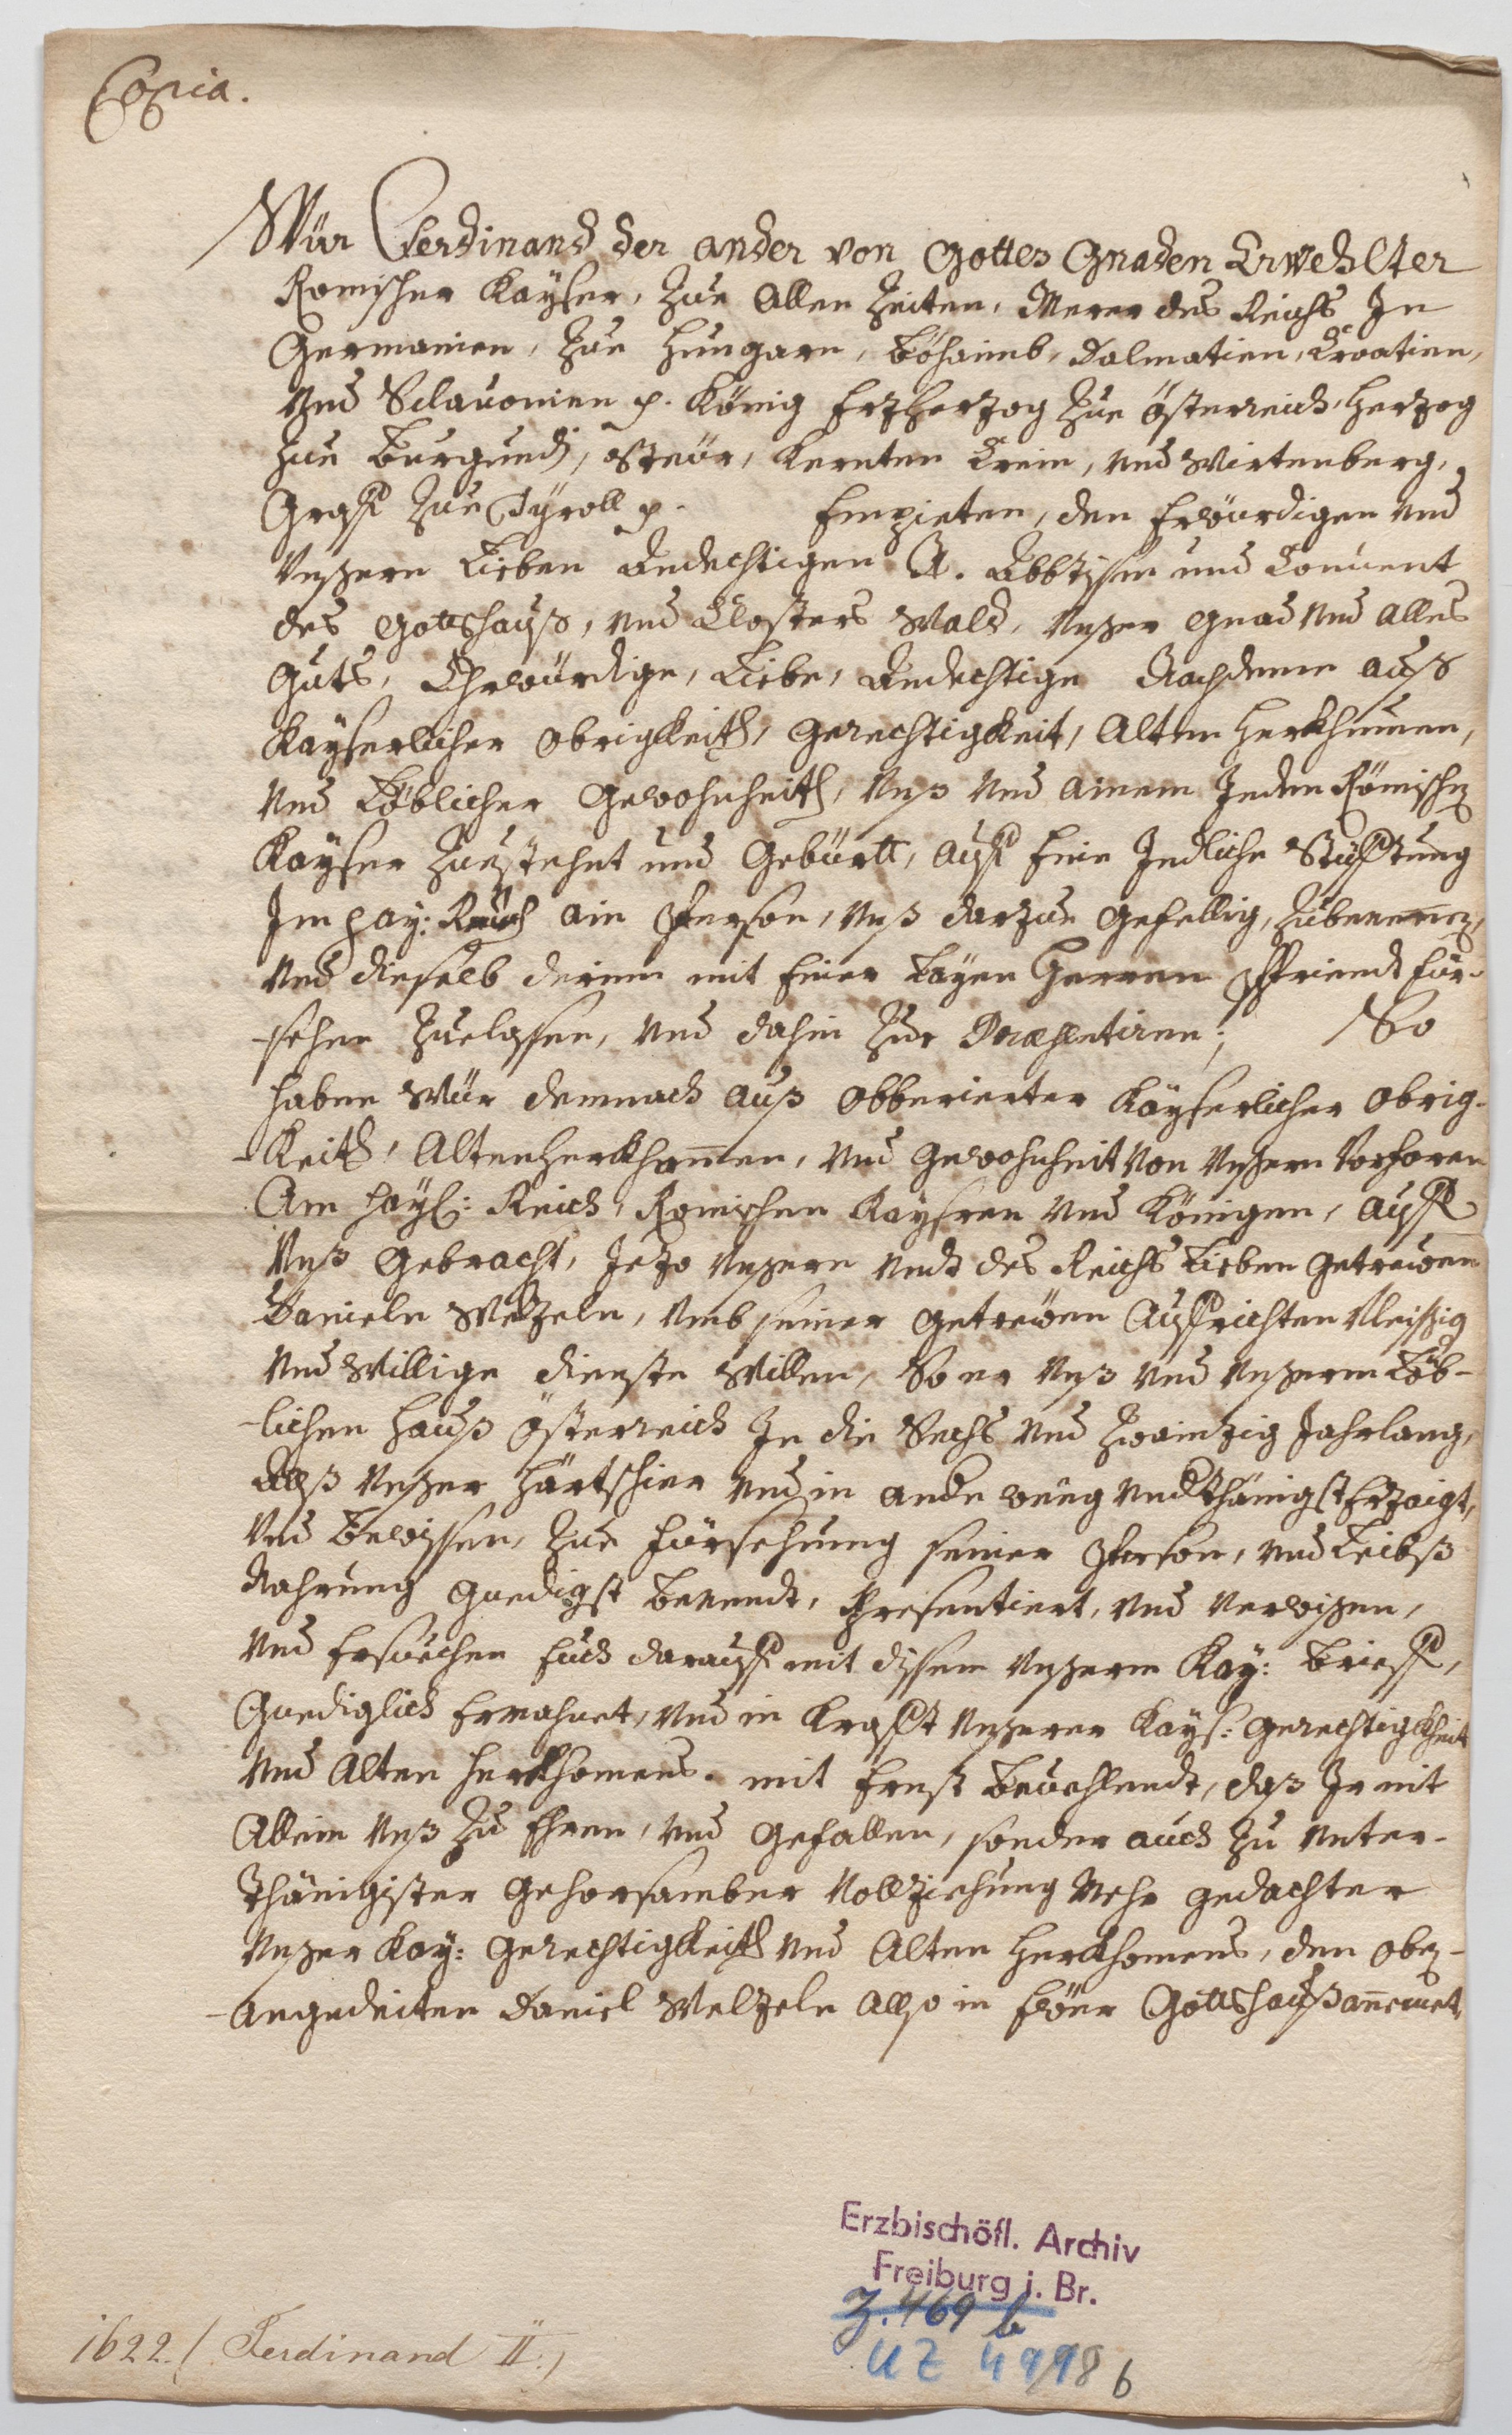 Copia.
Wür Ferdinand der ander von Gottes Gnaden Erwehlter
Romischer Kayser, Zue Allen Zeiten, Merer des Reichs In
Germanien, Zue Hungarn, Böhaimb, Dalmatien, Croatien,
Vnd Sclavonien p. König Erzherzog Zue Österreich, Herzog
Zue Burgundj, Steür, Kernten Crein, vnd Wirtenberg,
Graff Zue Tÿroll p. Empieten, den Erwürdigen vnd
Vnßern Lieben Andechtigen N. Abbtissin und Convent
des Gottshauß, vnd Closters Wald, Vnßer gnad vnd alles
Guts, Ehrwürdige, Liebe, Andechtige Nachdeme auß
Kayserlicher Obrigkeith, Gerechtigkeit, Alten Herkhummen,
Vnd Löblicher Gewohnheith, Vnß Vnd ainem Jeden Römischen
Kayser Zuestehet und Gebürtt, Auff Eine Jedliche Stüfftung
Im hay: Reich ain Person, Vnß darzue gefellig, Zubenennen,
Vnd dieselb darinn mit Einer Layen Herren Pfriendt für-
-sehen Zuelassen, Vnd dahin Zue Præsentiren; So
haben Wür demnach auß Obberierter Kayserlicher Obrig-
-Keith, Altenherkhommen, Vnd Gewohnheit Von Vnßern Vorforen
Am hayl: Reich, Romischen Kaysren Vnd Königen, Auff
Vnß Gebracht, Jezo Vnßern Vndt des Reichs Lieben Getrewen
Danieln Welzeln, Vmb seiner Getrewen Auffrichten Vleissig
Vnd Willige dienste Willen, So er Vnß Vnd Vnßerm Löb-
-lichen Hauß Österreich In die Sechs Vnd Zwainzig Jahrlang,
Alß Vnßer Hartschier Vnd in ander weeg Vndthänigst Erzaigt,
Vnd Bewissen, Zue Fürsehung seiner Person, Vnd Leibß
Nahrung Gnedigst Benendt, Presentiert, Vnd Verwißen,
Vnd Ersuechen Euch darauff mit disem Vnßerm Kay: Brieff,
Gnediglich Ermahnet, Vnd in Krafft Vnßerer Kays: Gerechtigkheit
Vnd Alten Herkhomens. mit Ernst Bevehlendt, daß Ir nit
Allein Vnß Zu Ehren, Vnd Gefallen, sonder auch Zu Vnter-
Thänigister Gehorsamber Vollziehung Mehr gedachter
Vnßer Kay: Gerechtigkeith Vnd Alten Herkhomens, den oben-
-angedeiten Daniel Welzeln Allso in Ewer Gottshauß annemet
Erzbischöfl. Archiv
Freiburg i. Br.
Z. 469 b
UZ 4998 b
1622. (Ferdinand II.)